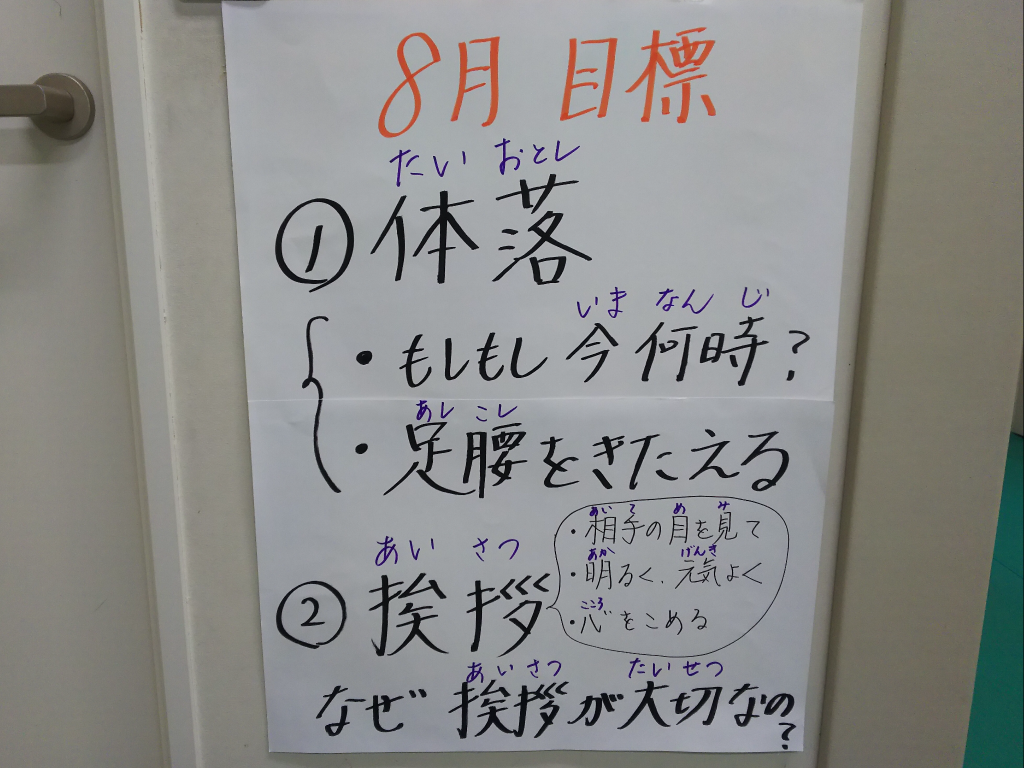 8月 目標
たい おとし
① 体落
いま なん じ
・もしもし 今 何時?
あし こし
・足腰をきたえる
あい さつ
② 挨拶
あい て め み
・相手の目を見て
あか げんき
・明るく、元気よく
こころ
・心をこめる
あいさつ たいせつ
なぜ 挨拶が大切なの?